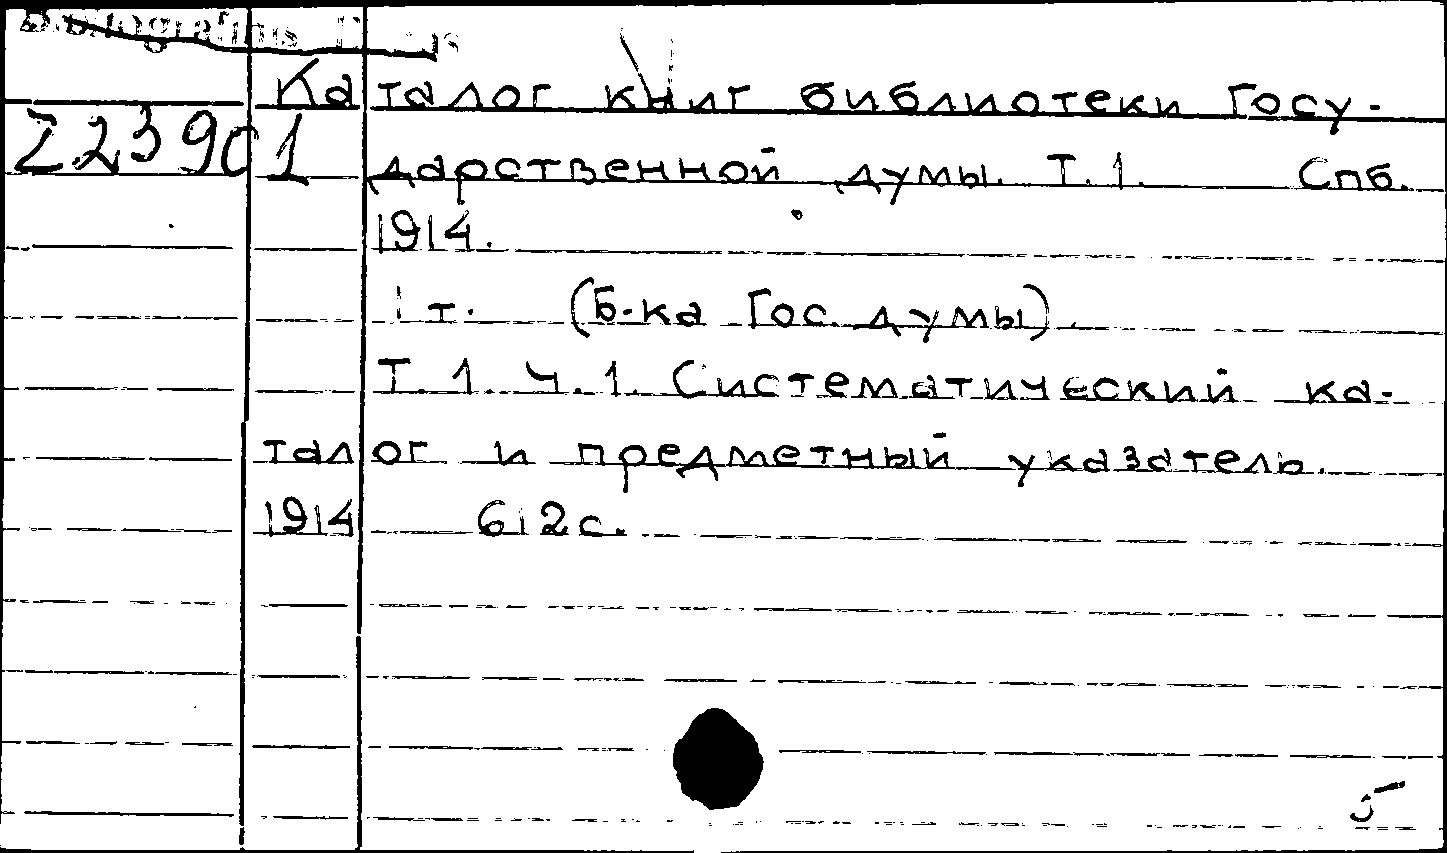 Каталог книг библиотеки Госу-
Z23901 дарственной думы. Т.1. Спб.
1914.
1 т. (Б-ка Гос. думы).
Т. 1. Ч. 1. Систематический ка-
талог и предметный указатель.
1914 612 с.
5